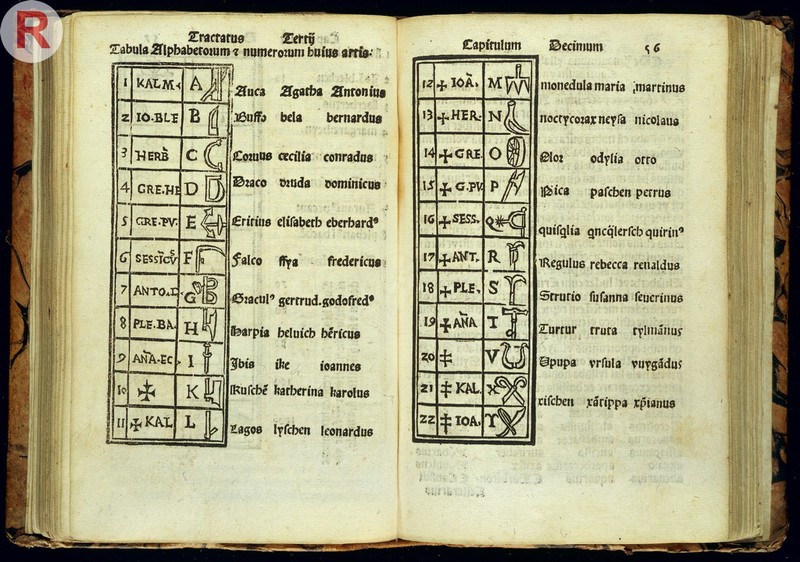 R
Tractatus Tertij
Tabula Alphabetorum ⁊ numerorum huius artis.
1 KALM A Auca Agatha Antonius
2 IO.BLE B Buffo bela bernardus
3 HERB̃ C Coruus cecilia conradus
4 GRE.HE D Draco druda dominicus
5 GRE.PV. E Eritius elisabeth eberhardꝰ
6 F Falco ffya fredericus
7 ANTO.D G Graculꝰ gertrud. godofredꝰ
8 PLE.BA. H Harpia heluich hẽricus
9 AÑA.EC. I Ibis ike ioannes
10 ✠ K Kuschẽ katherina karolus
11 ✠ KAL L Lagos lyschen leonardus
Capitulum Decimum 56
12 ✠ IOÃ. M monedula maria martinus
13 ✠ HER. N noctycorax neysa nicolaus
14 ✠ GRE. O Olor odylia otto
15 ✠ G.PV. P Pica paschen petrus
16 ✠ SESS. Q quisq̃lia gneq̃lersch quirinꝰ
17 ✠ ANT. R Regulus rebecca renaldus
18 ✠ PLE. S Strutio susanna seuerinus
19 ✠ AÑA T Turtur truta tylmãnus
20 ‡ V Upupa vrsula vuygãdus
21 ‡ KAL X xischen xãtippa xp̃ianus
22 ‡ IOA. Y